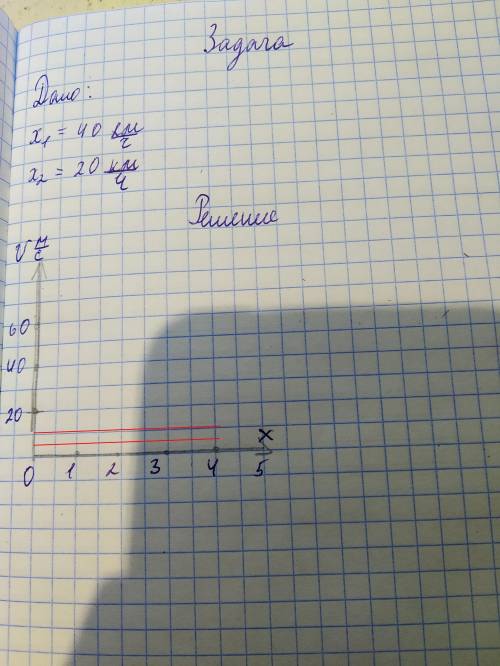 Задача
Дано:
x₁ = 40 км/ч
x₂ = 20 км/ч
Решение
v м/с
60
40
20
x
0 1 2 3 4 5